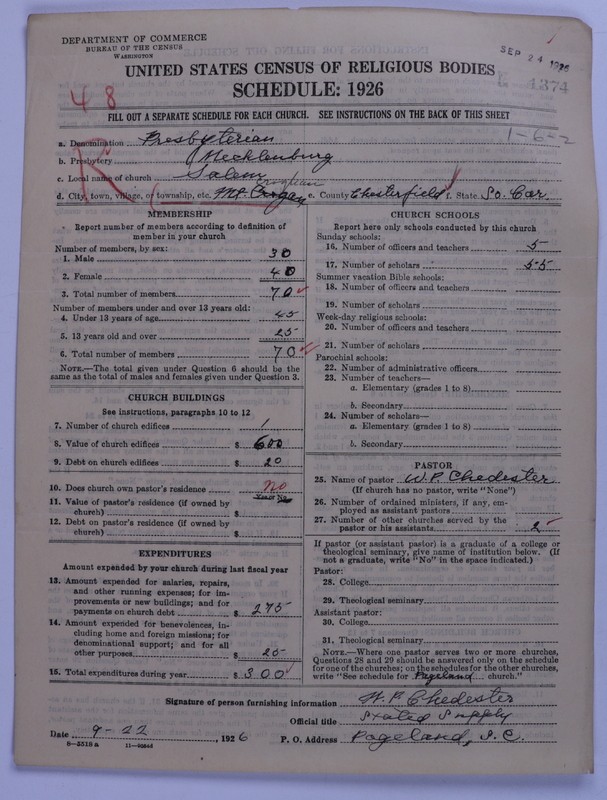 DEPARTMENT OF COMMERCE
BUREAU OF THE CENSUS
WASHINGTON
SEP 24 1926
1374
UNITED STATES CENSUS OF RELIGIOUS BODIES
SCHEDULE: 1926
48
FILL OUT A SEPARATE SCHEDULE FOR EACH CHURCH. SEE INSTRUCTIONS ON THE BACK OF THIS SHEET
1-6-2
R
a. Denomination Presbyterian
b. Presbytery Mecklenburg
c. Local name of church Salem
d. City, town, village, or township, etc. Mt. Croghan e. County Chesterfield f. State So. Car.
MEMBERSHIP
Report number of members according to definition of member in your church
Number of members, by sex:
1. Male 30
2. Female 40
3. Total number of members 70
Number of members under and over 13 years old:
4. Under 13 years of age 45
5. 13 years old and over 25
6. Total number of members 70
NOTE.—The total given under Question 6 should be the same as the total of males and females given under Question 3.
CHURCH BUILDINGS
See instructions, paragraphs 10 to 12
7. Number of church edifices 1
8. Value of church edifices $ 600
9. Debt on church edifices $ 20
10. Does church own pastor's residence No
Yes or No
11. Value of pastor's residence (if owned by church) $
12. Debt on pastor's residence (if owned by church) $
EXPENDITURES
Amount expended by your church during last fiscal year
13. Amount expended for salaries, repairs, and other running expenses; for improvements or new buildings; and for payments on church debt $ 275
14. Amount expended for benevolences, including home and foreign missions; for denominational support; and for all other purposes $ 25
15. Total expenditures during year $ 300
CHURCH SCHOOLS
Report here only schools conducted by this church
Sunday schools:
16. Number of officers and teachers 5
17. Number of scholars 55
Summer vacation Bible schools:
18. Number of officers and teachers
19. Number of scholars
Week-day religious schools:
20. Number of officers and teachers
21. Number of scholars
Parochial schools:
22. Number of administrative officers
23. Number of teachers—
a. Elementary (grades 1 to 8)
b. Secondary
24. Number of scholars—
a. Elementary (grades 1 to 8)
b. Secondary
PASTOR
25. Name of pastor W. P. Chedester
(If church has no pastor, write "None")
26. Number of ordained ministers, if any, employed as assistant pastors
27. Number of other churches served by the pastor or his assistants 2
If pastor (or assistant pastor) is a graduate of a college or theological seminary, give name of institution below. (If not a graduate, write "No" in the space indicated.)
Pastor:
28. College
29. Theological seminary
Assistant pastor:
30. College
31. Theological seminary
NOTE.—Where one pastor serves two or more churches, Questions 28 and 29 should be answered only on the schedule for one of the churches; on the schedules for the other churches, write "See schedule for Pageland church."
Signature of person furnishing information W. P. Chedester
Official title Stated Supply
Date 9-22, 1926 P. O. Address Pageland, S. C.